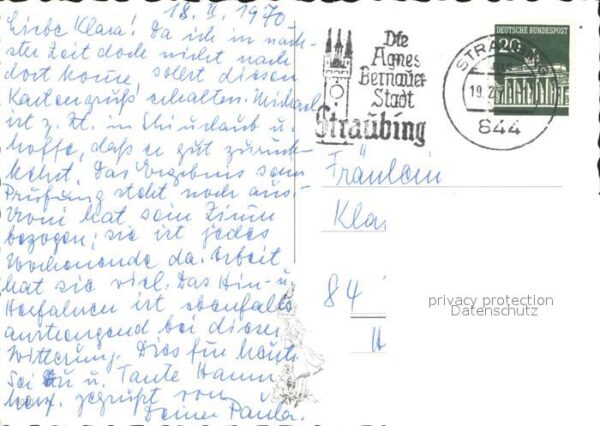 18. II. 1970
Liebe Klara! Da ich in näch-
ster Zeit doch nicht nach
dort komme, sollst diesen
Kartengruß erhalten. Michael
ist z. Zt. in Skiurlaub u.
hoffe, daß er gut zurück-
kehrt. Das Ergebnis sein
Prüfung steht noch aus.
Vroni hat sein Zimm
bezogen; sie ist jedes
Wochenende da. Arbeit
hat sie viel. Das Hin- u.
Herfahren ist ebenfalls
anstrengend bei dieser
Witterung. Dies für heute
Sei Du u. Tante Hanni
herz. gegrüßt von
Deiner Paula.
Die
Agnes
Bernauer
Stadt
Straubing
DEUTSCHE BUNDESPOST
20
STRAUBING
19.2.
844
Fräulein
Kla
84
H
privacy protection
Datenschutz